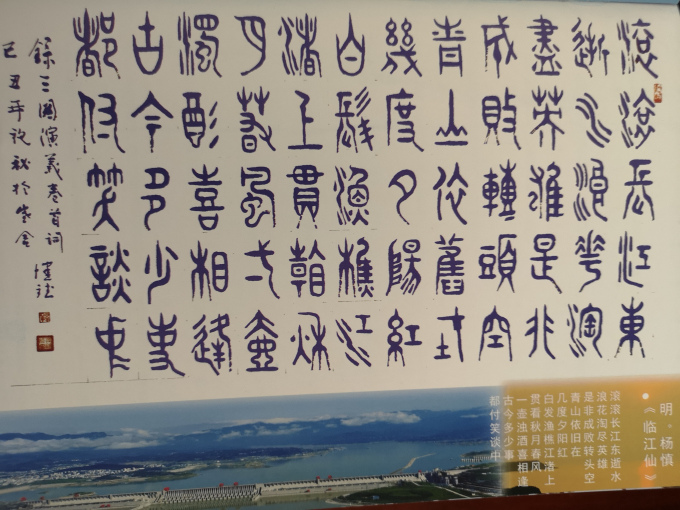 滚滚長江東
逝水浪花淘
盡英雄是非
成敗轉頭空
青山依舊在
幾度夕陽紅
白髮漁樵江
渚上貫看秋
月春風弌壺
濁酒喜相逢
古今多少事
都付笑談中
錄三國演義卷首詞
己丑年
明·杨慎
●《临江仙》
滚滚长江东逝水
浪花淘尽英雄
是非成败转头空
青山依旧在
几度夕阳红
白发渔樵江渚上
贯看秋月春风
一壶浊酒喜相逢
古今多少事
都付笑谈中